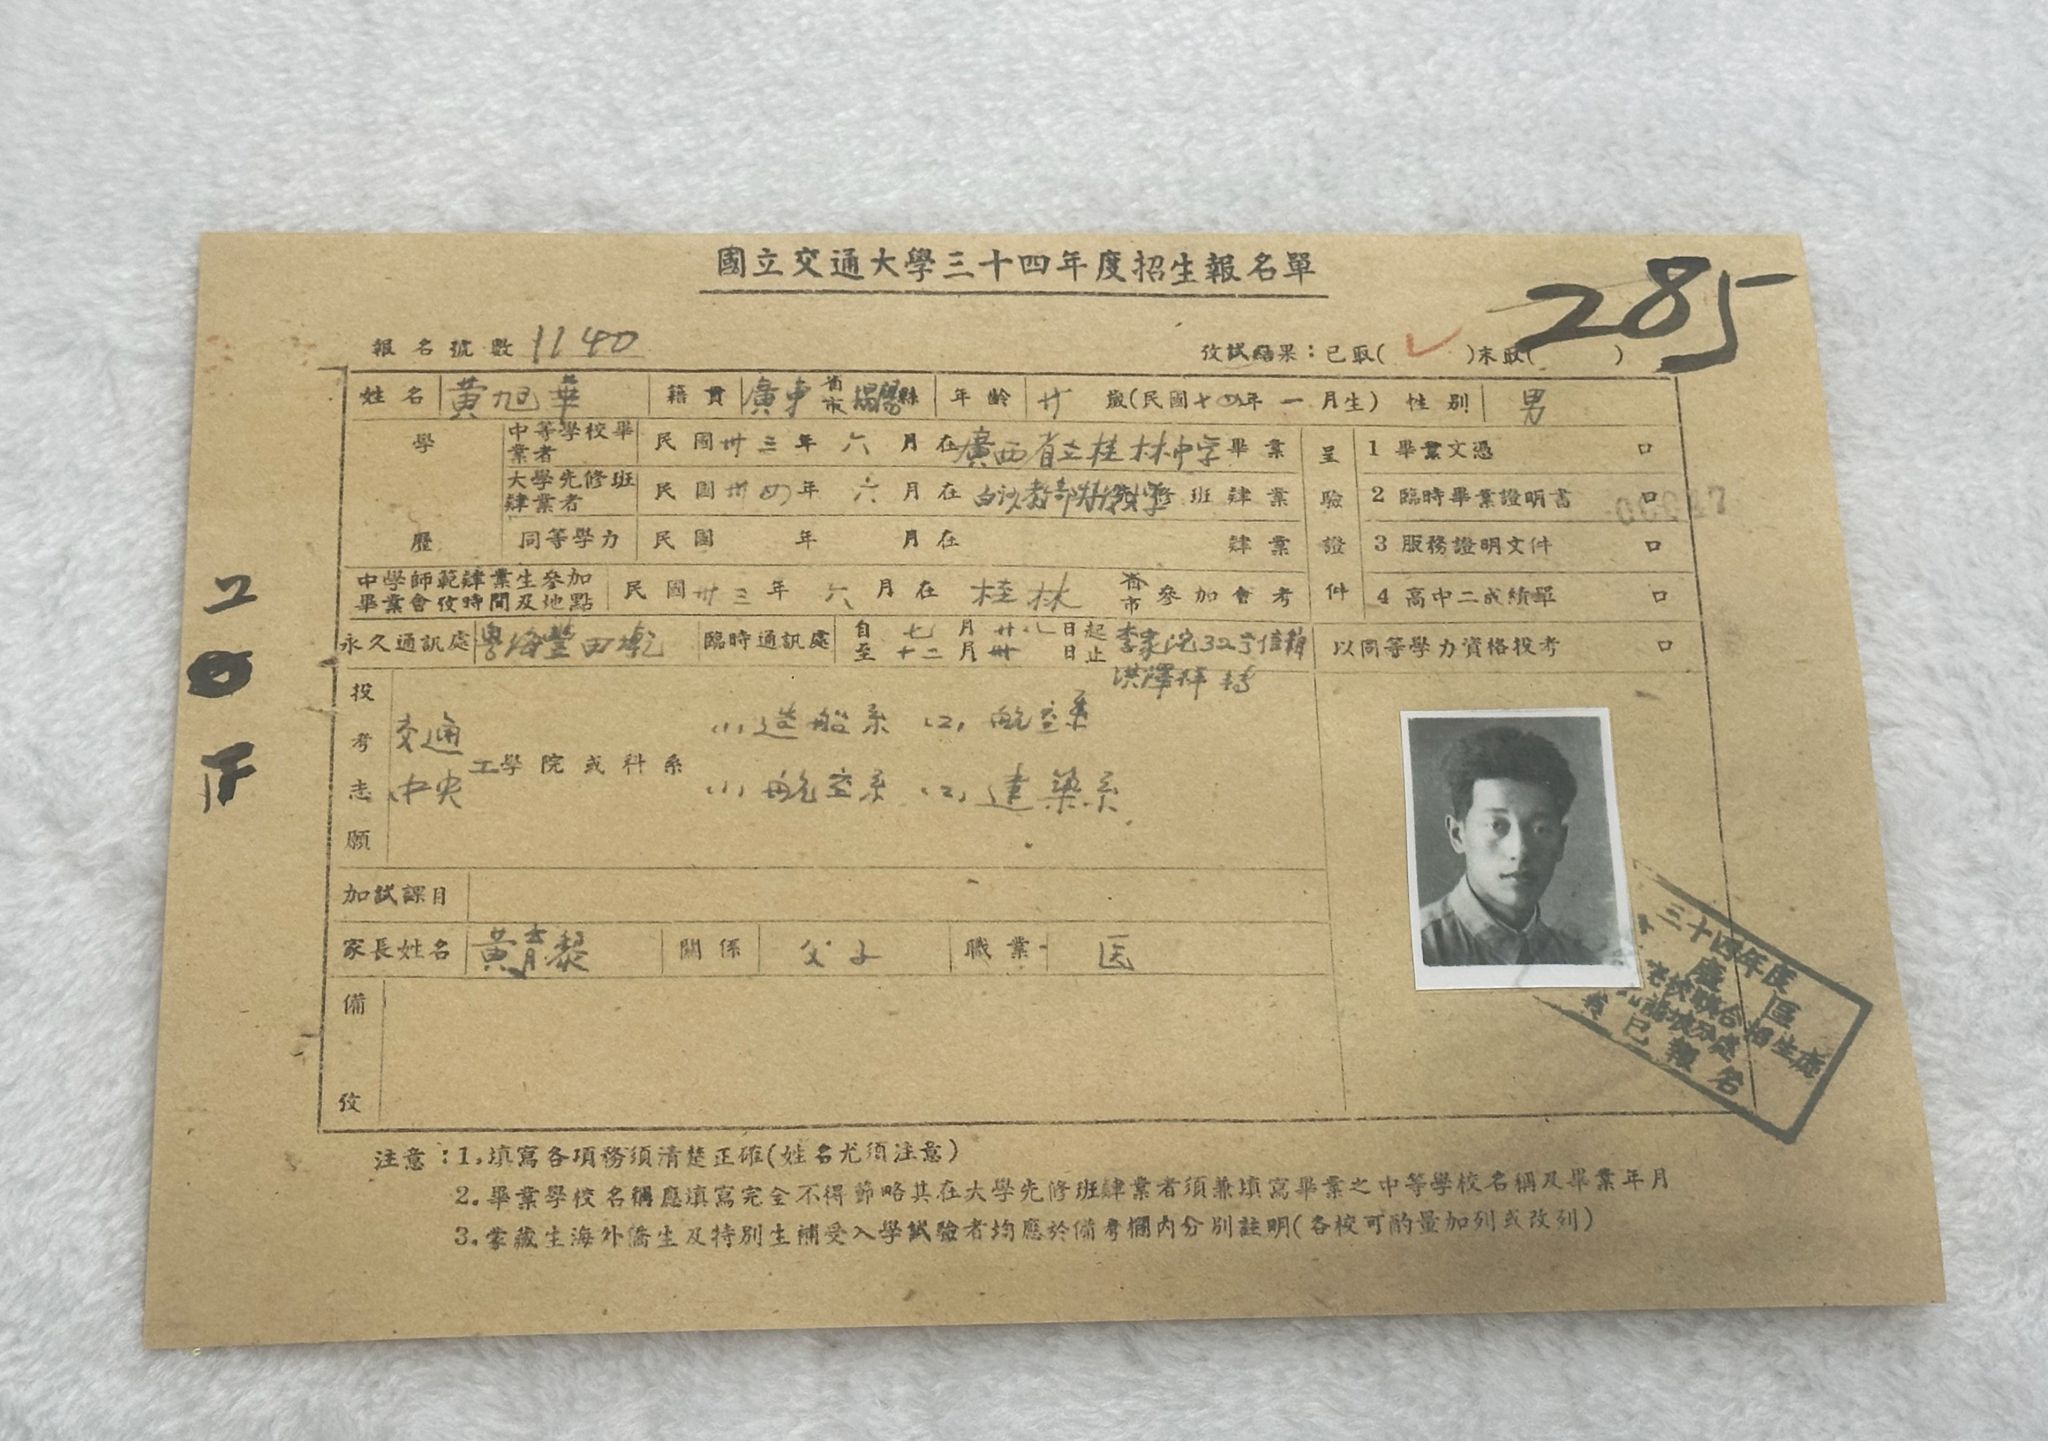 國立交通大學三十四年度招生報名單
285
報名號數 1140 攷試結果：已取( ✓ )未取( )
姓名 黃旭華 籍貫 廣東 省市 揭陽縣 年齡 廿 歲(民國十四年一月生) 性別 男
學歷
中等學校畢業者 民國卅三年六月在廣西省立桂林中学畢業
大學先修班肄業者 民國卅四年六月在白沙教部特設大學先修班肄業
同等學力 民國 年 月在 肄業
中學師範肄業生參加畢業會攷時間及地點 民國卅三年六月在桂林省市參加會考
呈驗證件
1 畢業文憑 口
2 臨時畢業證明書 口
3 服務證明文件 口
4 高中二成績單 口
永久通訊處 粵海豐田墘 臨時通訊處 自七月廿八日起至十二月卅日止 李家沱32号信箱
洪澤祥轉
以同等學力資格投考 口
投考志願
交通 (1)造船系 (2)航空系
工學院或科系
中央 (1)航空系 (2)建築系
加試課目
家長姓名 黃育黎 關係 父子 職業 医
備攷
三十四年度
區
招生處
已報名
注意：1.填寫各項務須清楚正確(姓名尤須注意)
2.畢業學校名稱應填寫完全不得節略其在大學先修班肄業者須兼填寫畢業之中等學校名稱及畢業年月
3.蒙藏生海外僑生及特別生補受入學試驗者均應於備考欄內分別註明(各校可酌量加列或改列)